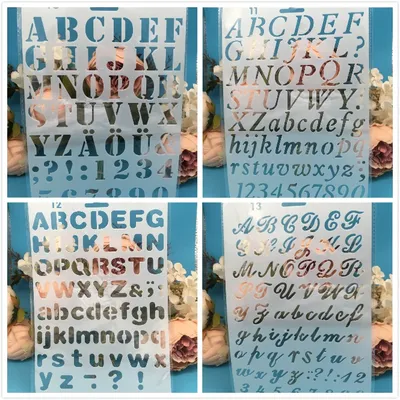 ABCDEF
GHIJKL
MNOPQR
STUVWX
YZÄÖÜ&
;?!:1234
567890
11
ABCDEF
GHIJKL?
MNOPQR
STUVWY.
XZabcdefg
hijklmnopq
rstuvwxyz;
1234567890
12
ABCDEFG
HIJKLMN
OPQRSTU
VWXYZ&;
abcdefgh
ijklmnopq
rstuvwx
yz-:?!
13
ABCDEF
GHIJKL
MNOPQR
STUVWX
YZabcdef
ghijklmn
opqrstuv
wxyz